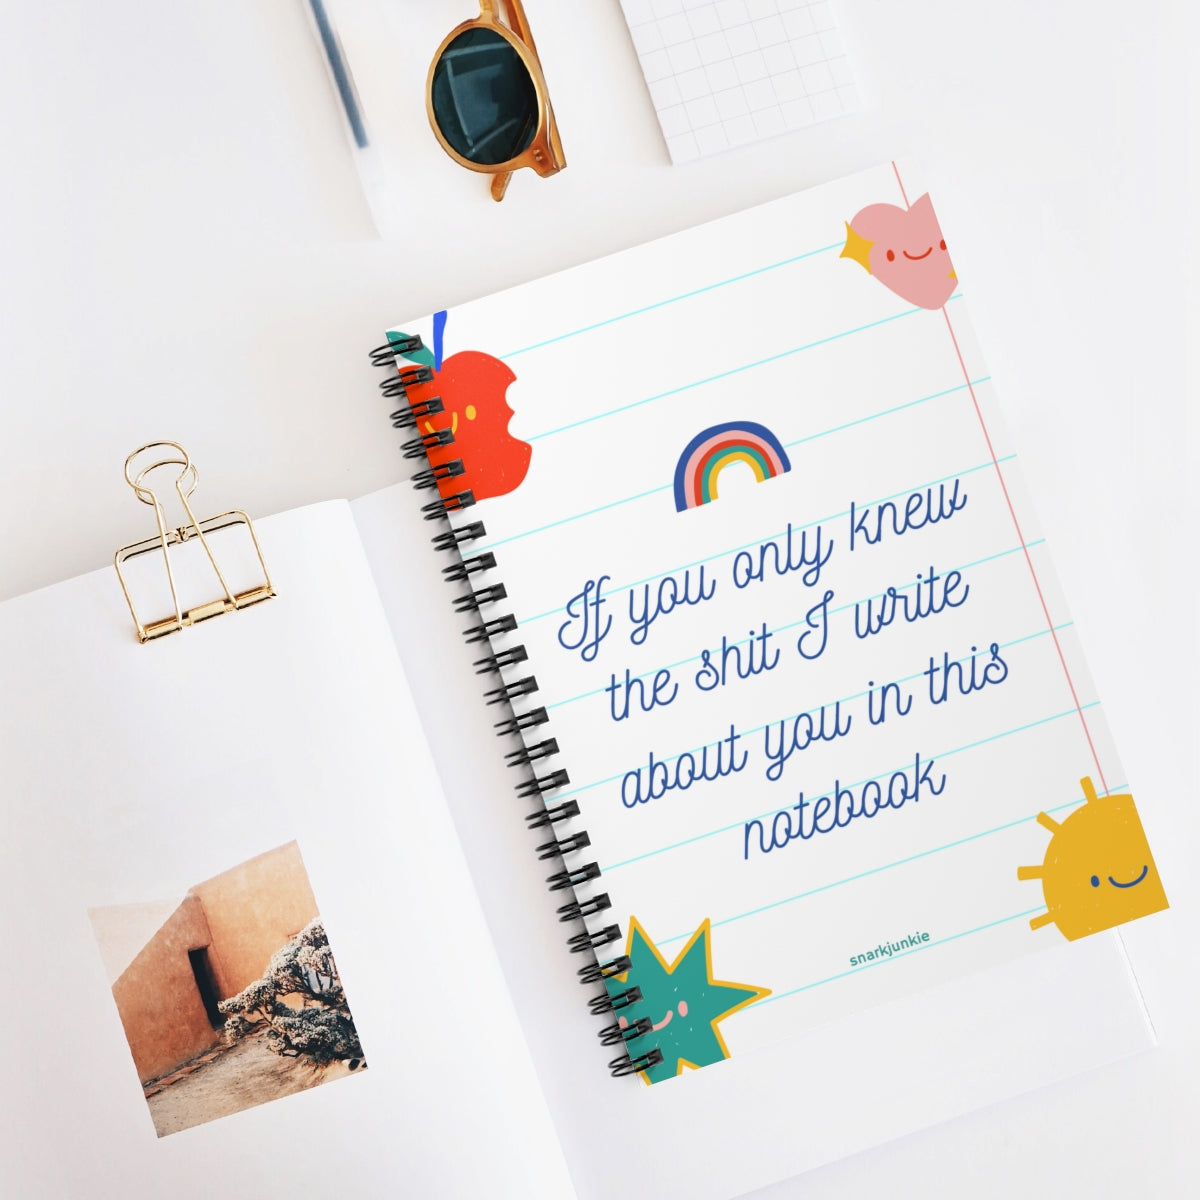 If you only knew
the shit I write
about you in this
notebook
snarkjunkie